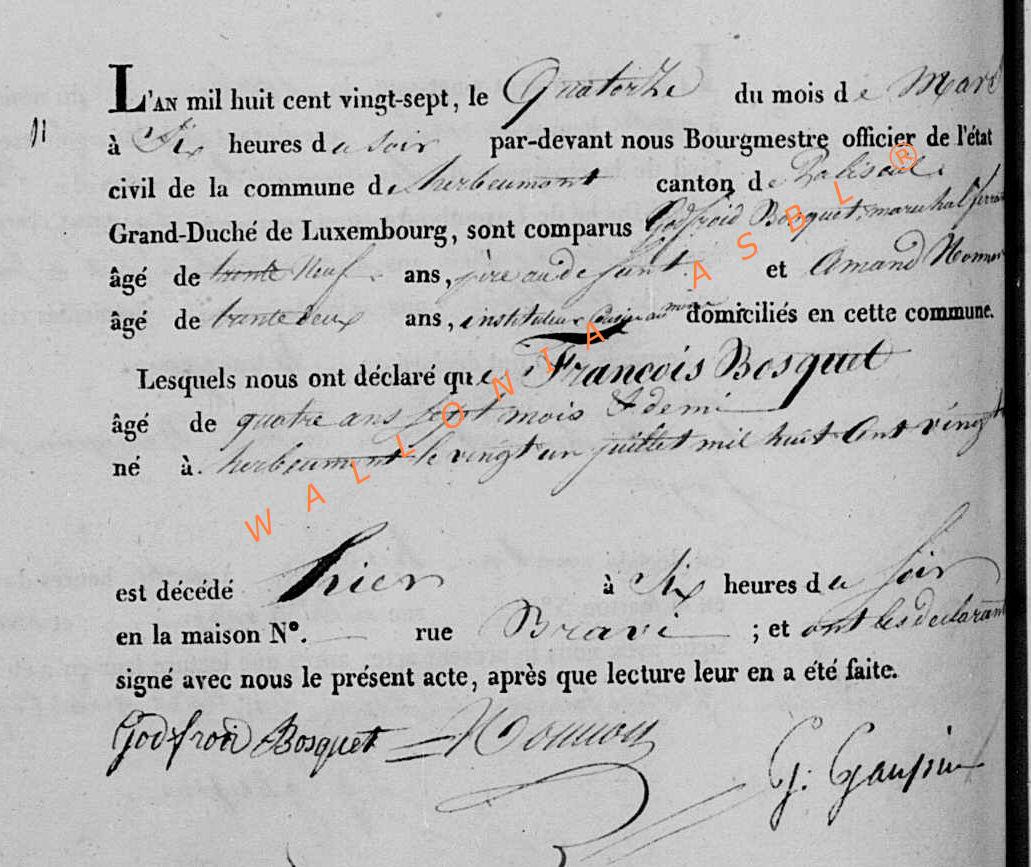 11
L'AN mil huit cent vingt-sept, le Quatorze du mois de Mars
à Six heures du soir par-devant nous Bourgmestre officier de l'état
civil de la commune de herbeumont canton de Paliseul
Grand-Duché de Luxembourg, sont comparus Godfroid Bosquet marechal ferrant
âgé de trente Neuf ans, père au defunt et Amand Nonnon
âgé de trente deux ans, instituteur domiciliés en cette commune.
Lesquels nous ont déclaré que François Bosquet
âgé de quatre ans sept mois & demi
né à herbeumont le vingt un juillet mil huit cent vingt
est décédé hier à Six heures du soir
en la maison N°. rue Bravi ; et ont les declarants
signé avec nous le présent acte, après que lecture leur en a été faite.
Godfroid Bosquet Nonnon
G. Gaupin
WALLONIA ASBL ®